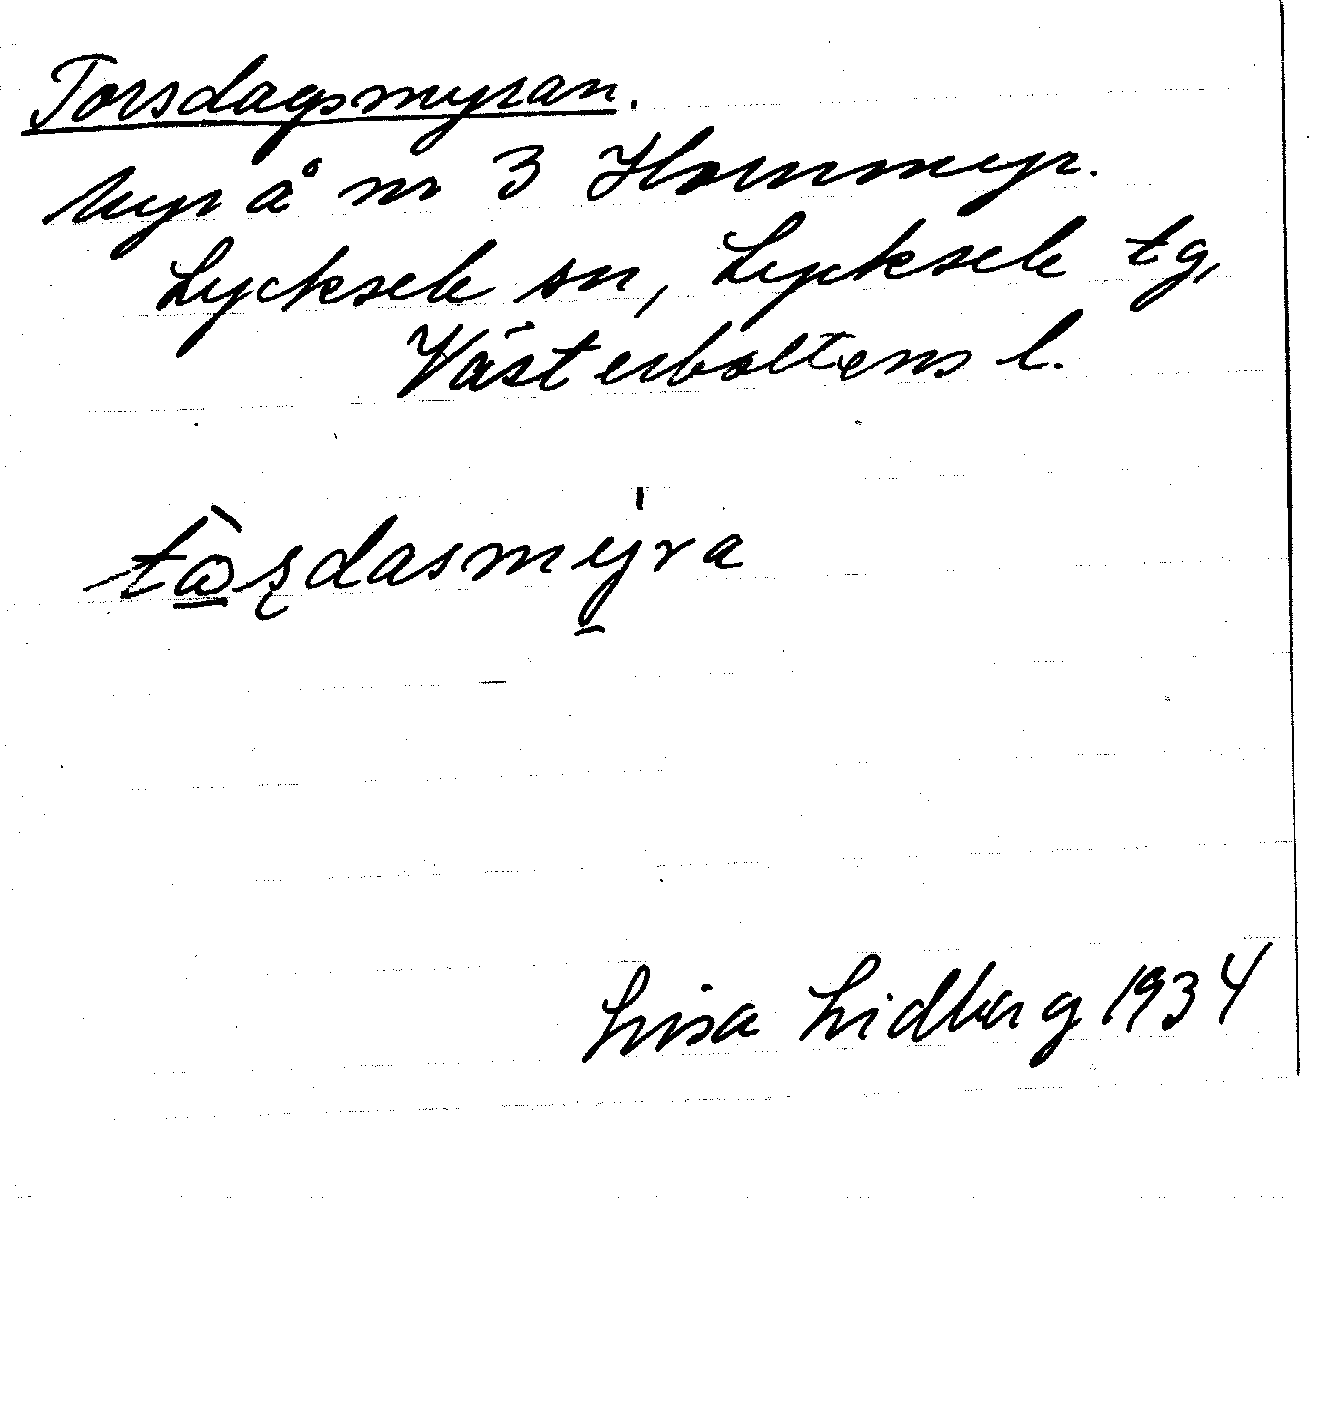 Torsdagsmyran.
Myr å nr 3 Hornmyr.
Lycksele sn, Lycksele tg,
Västerbottens l.
tå̱̀ʂdasmy̱̍ra
Lisa Lidberg 1934